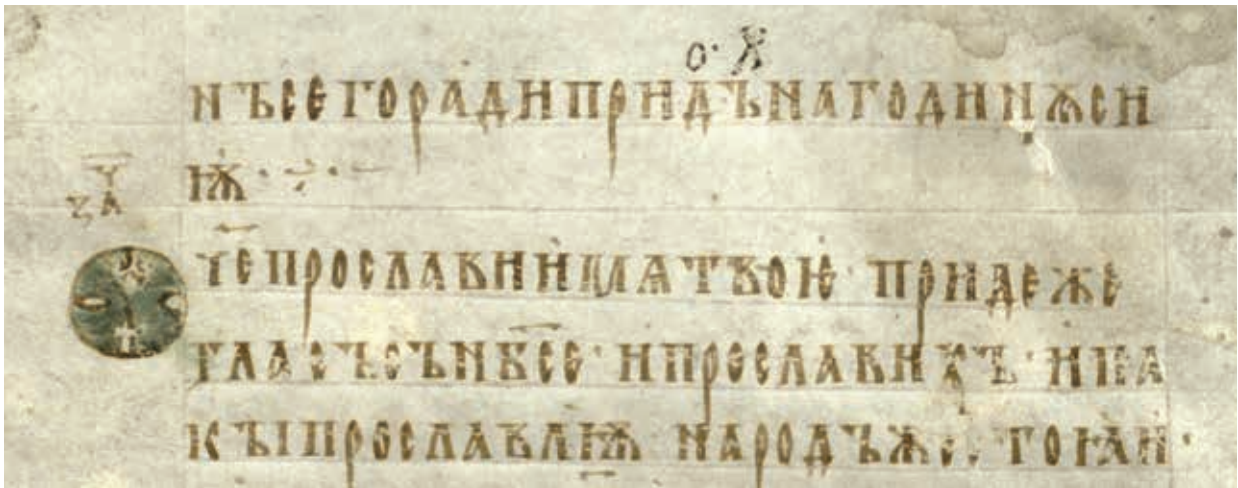 о· ѫ
НЪСЕГОРАДИПРИДЪНАГОДИНѪСИ
Ѭ·
ЗАЧ
ОЧ҃ЕПРОСЛАВИИМѦТВОѤ· ПРИДЕЖЕ
ГЛАСЪСЪНБ҃СЕ· ИПРОСЛАВИХЪ· ИПА
КЪІПРОСЛАВЛѬ НАРОДЪЖЕСТОꙖИ·